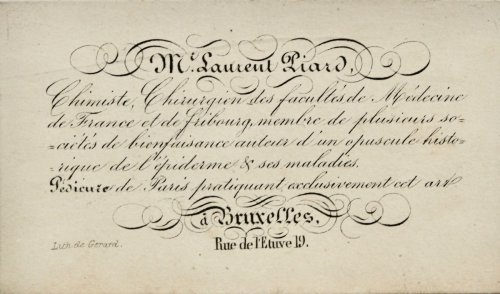 Mr. Laurent Piard,
Chimiste, Chirurgien des facultés de Médecine
de France et de fribourg, membre de plusieurs so-
-ciétés de bienfaisance auteur d'un opuscule histo-
-rique de l'épiderme & ses maladies.
Pédicure de Paris pratiquant exclusivement cet art
à Bruxelles,
Rue de l'Etuve 19.
Lith. de Gérard.